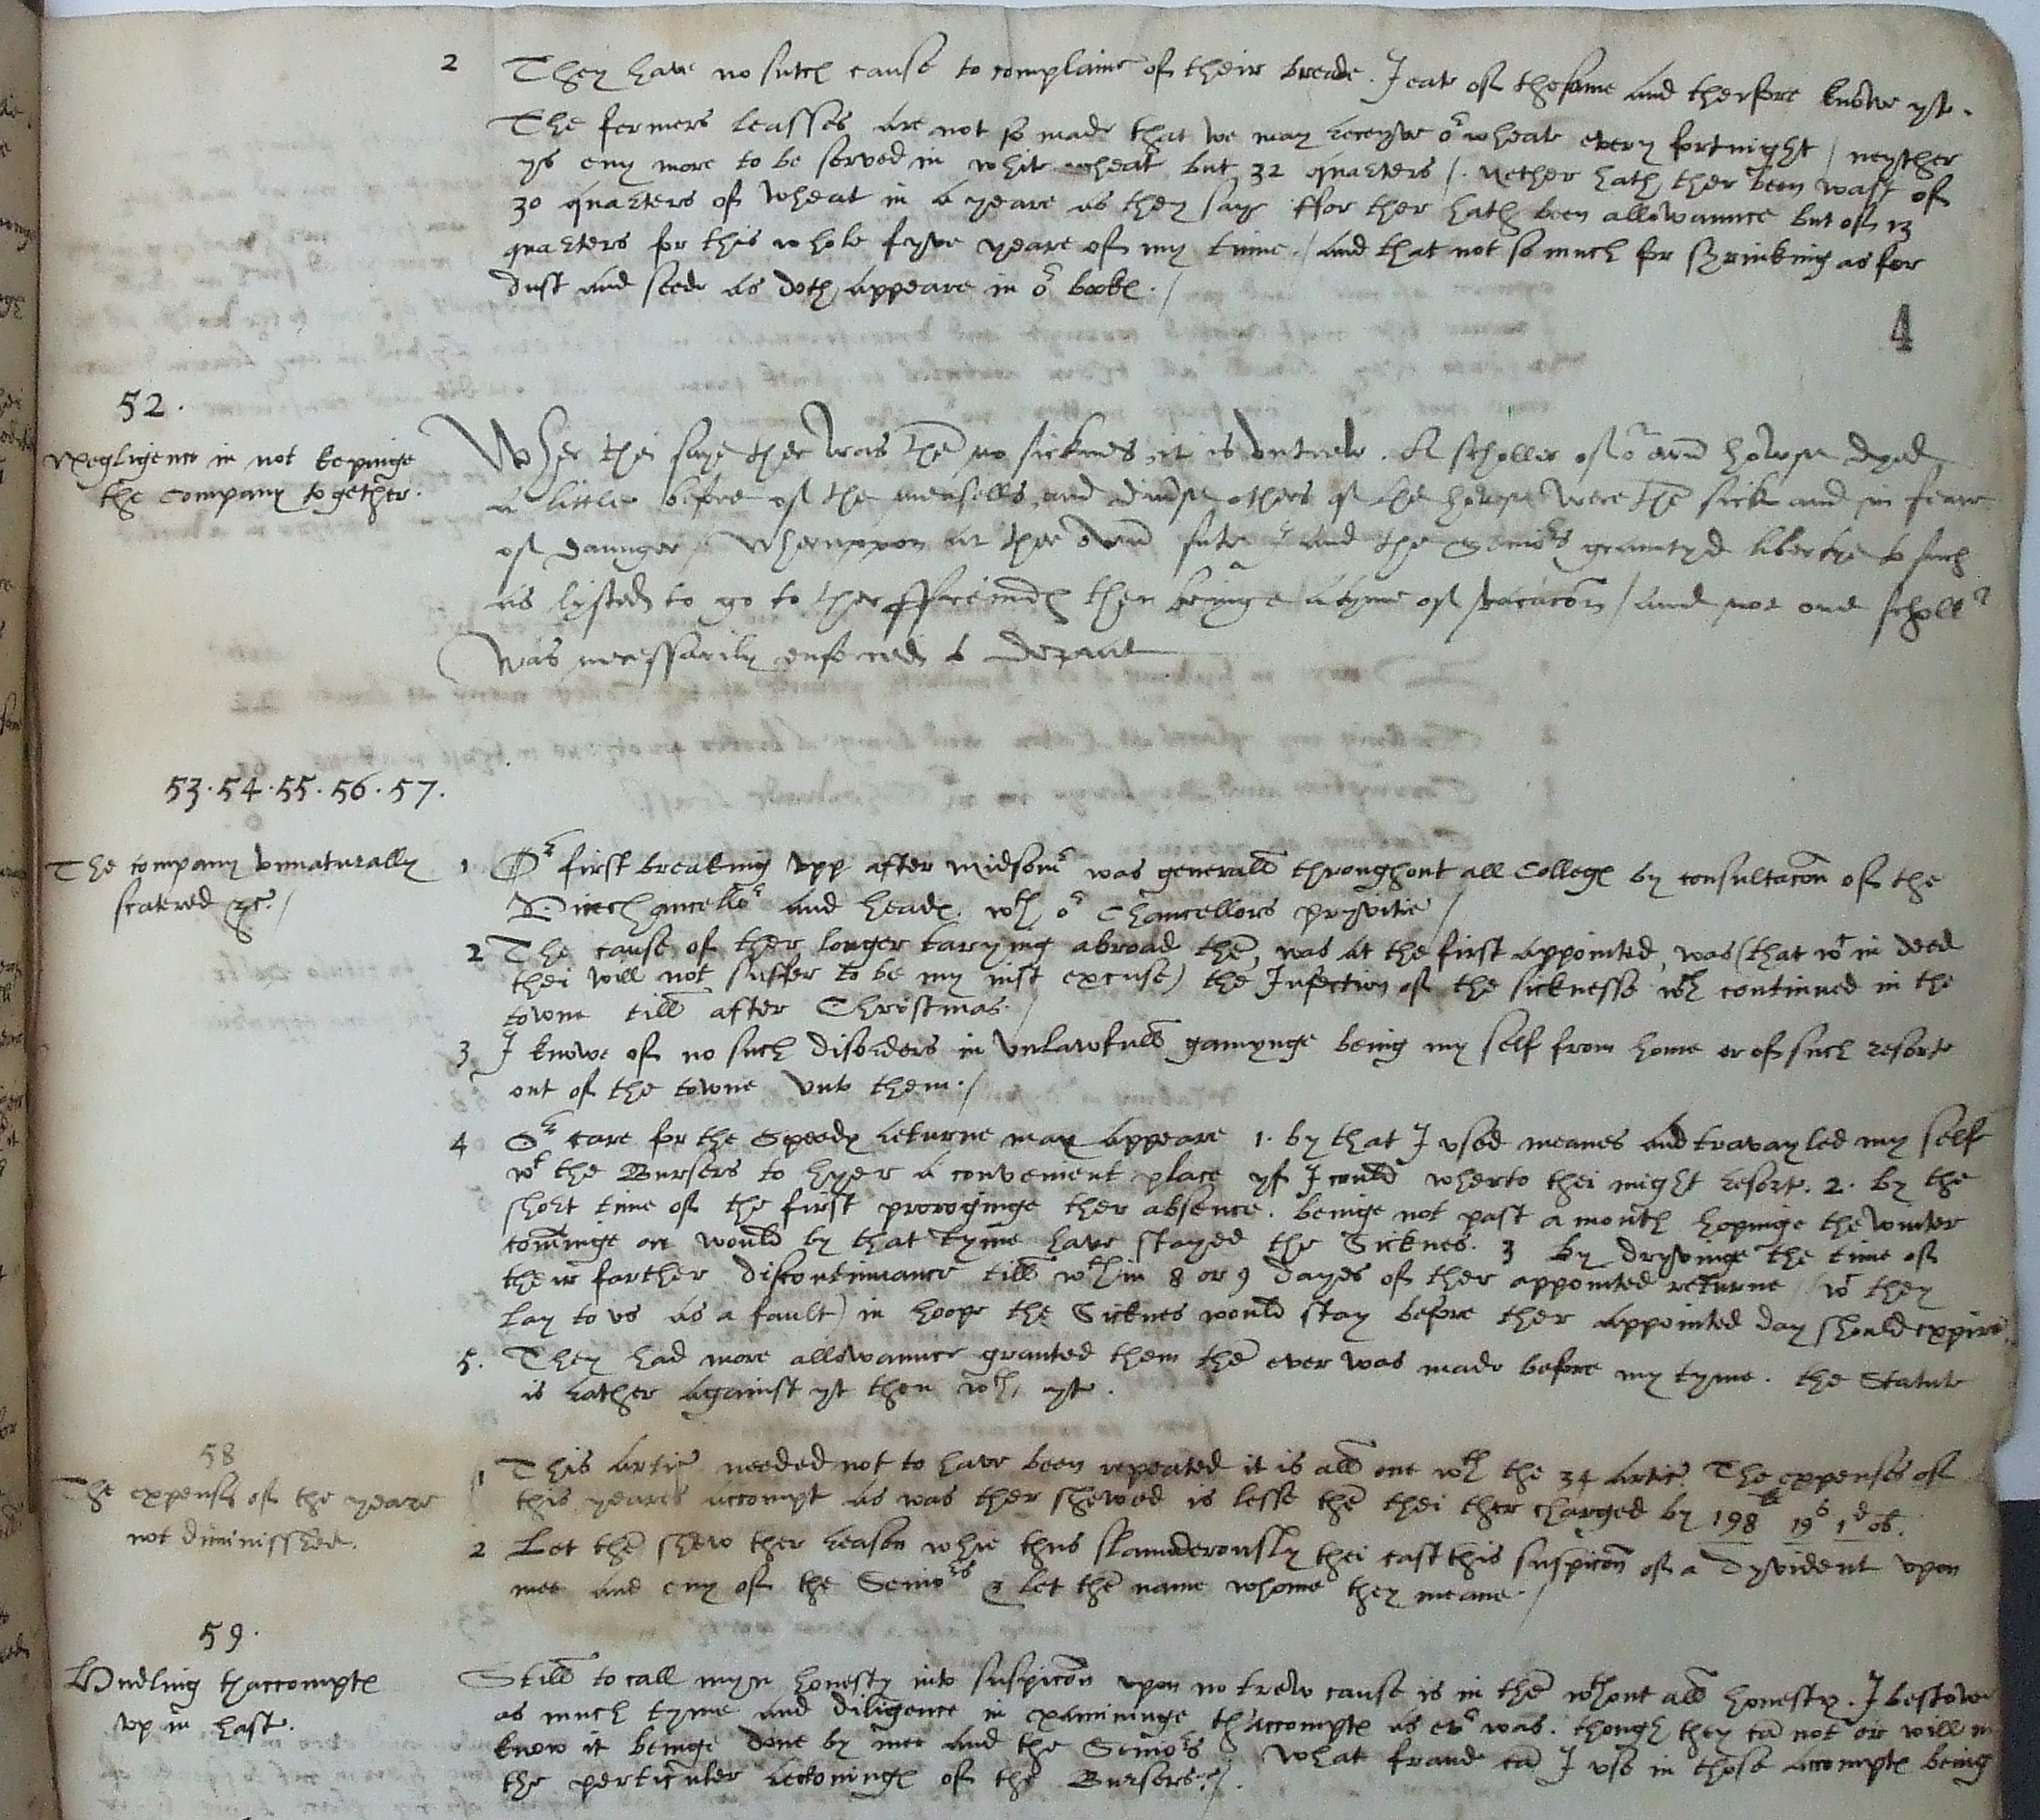 2 They have no sutch cause to complaine of their breade. I eate of the same and therfore knowe yt.
The fermers leasses are not so made that we may receyve oʳ wheate every fortnight / neyther
ys eny more to be served in white wheat but 32 quarters /. Nether hath ther been wast of
30 quarters of wheat in a yeare as they saye ffor ther hath been allowaunce but of 13
quarters for this whole fyve yeare of my time./ and that not so much for shrinking as for
dust and seede as doth appeare in oʳ bookes./
4
52.
Negligence in not kepinge
the company together.
Wher thei saye ther was the̅ no sicknes it is untrew. A scholler of oʳ awn howse dyed
a little before of the measells and diverse others of the howse were the̅ sick and in feare
of daunger / Wheruppon at ther own sute I and the Senioʳs grauntyd libertye to such
as lysted to go to ther ffreindes then beinge a tyme of vacacōn / and not one schollʳ
was necessarily enforced to depart
53.54.55.56.57.
The company unnaturally
scatered &c./
1 Oʳ first breaking upp after midsomʳ was generall throughout all Colleges by consultacōn of the
Vicechancelloʳ and heades. wth oʳ Chancellors pryvitie /
2 The cause of ther longer tarying abroad the̅, was at the first appointed, was (that wᶜ in deed
thei will not suffer to be my iust excuse) the Infection of the sicknesse wch continued in the
towne till after Christmas./
3 I knowe of no such disorders in unlawfull gamynge being my self from home or of such resorte
out of the towne unto them./
4 Oʳ care for the speedy returne may appeare 1. by that I used meanes and travayled my self
wᵗ the Bursers to hyer a convenient place yf I could wherto thei might resorte. 2. by the
short time of the first proroginge ther absence. beinge not past a month hopinge the winter
com̅inge on would by that tyme have stayed the Sicknes. 3 by dryvinge the time of
their farther discontinuance till wthin 8 or 9 dayes of ther appointed returne / (wᶜ they
lay to us as a fault) in hoope the Sicknes would stay before ther appointed day should expire.
5. They had more allowaunce granted them the̅ ever was made before my tyme. the Statute
is rather against yt then wth yt.
58
The expenses of the yeare
not diminisshed.
1 This artic̅ needed not to have been repeated it is all one wth the 34 artic̅. The expenses of
this yeares accompt as was ther shewed is lesse the̅ thei ther charged by 198ˡⁱ 19ˢ 1ᵈ ob.
2 Let the̅ shew ther reason whie thus slaunderously thei cast this suspicōn of a dyvident upon
mee and eny of the Senioʳs & let the̅ name whome they meane./
59.
Hudling thaccomptes
up in hast.
Still to call myn honesty into suspicōn upon no trew cause is in the̅ wthout all honesty. I bestowe
as much tyme and diligence in examininge thaccomptes as evʳ was. though they ca̅ not or will n
know it beinge done by mee and the Senioʳs /. What fraude ca̅ I use in those accomptes being
the perticuler reckoninges of the Bursers./.